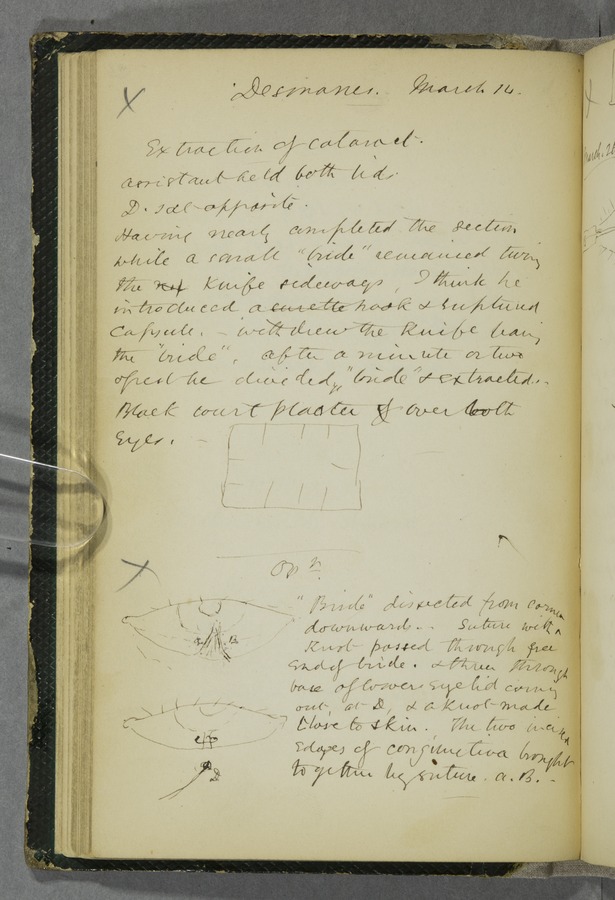 X Desmarres. March 14.
Extraction of cataract.
assistant held both lids.
D. sat opposite.
Having nearly completed the section
while a small "bride" remained
the knife sideways, I think he
introduced a curette hook & ruptured
capsule. - withdrew the knife leaving
the "bride", after a minute or two
of rest he divided ye "bride" & extracted. -
Black court plaster over both
Eyes.
X Opn.
"Bride" dissected from cornea
downwards. - Suture with a
Knot passed through free
End of bride. & then through
base of lower Eyelid coming
out, at D, & a knot made
Close to skin. The two incised
Edges of conjunctiva brought
together by suture. a. B. -